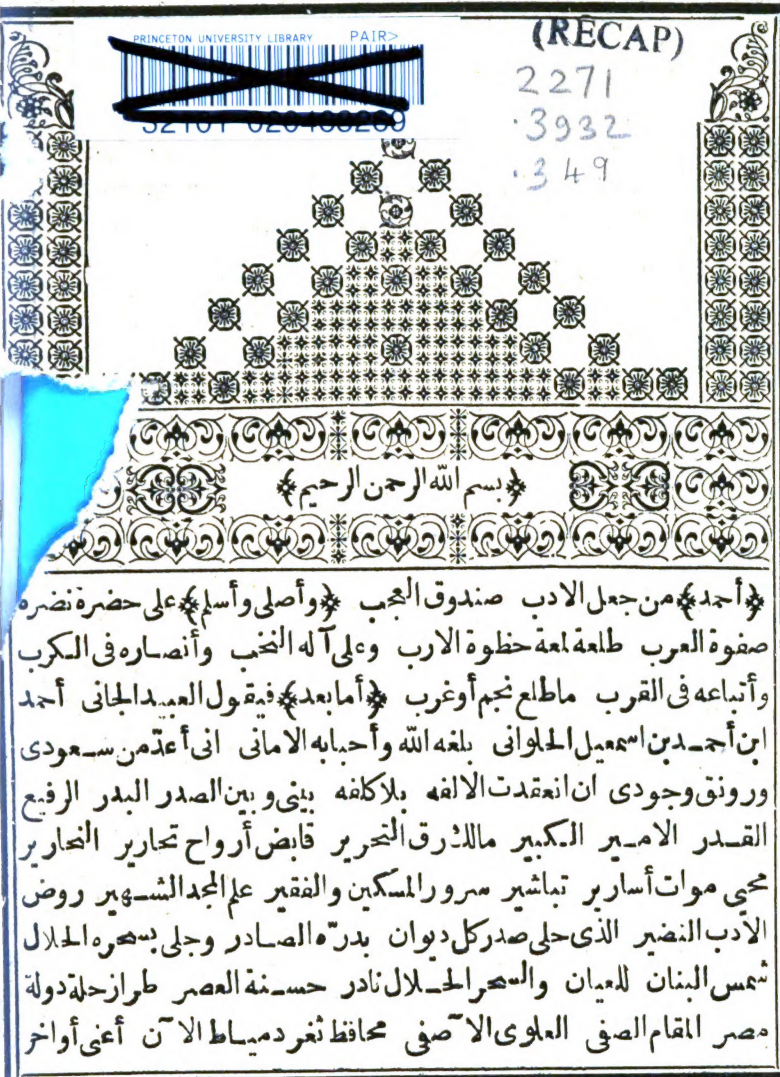 PRINCETON UNIVERSITY LIBRARY PAIR>
(RECAP)
2271
.3932
.349
﴿بسم الله الرحمن الرحيم﴾
﴿أحمد﴾ من جعل الادب صندوق العجب ﴿وأصلى وأسلم﴾ على حضرة نضره
صفوة العرب طلعة لمعة حظوة الارب وعلى آله النخب وأنصاره فى الكرب
وأتباعه فى القرب ماطلع نجم أوغرب ﴿أما بعد﴾ فيقول العبيد الجانى أحمد
ابن أحمد بن اسمعيل الحلوانى بلغه الله وأحبابه الامانى انى أعدّ من سعودى
ورونق وجودى ان انعقدت الالفه بلاكلفه بينى وبين الصدر البدر الرفيع
القدر الامير الكبير مالك رق التحرير قابض أرواح تحارير النحارير
محيى موات أسارير تباشير سرور المسكين والفقير علم المجد الشهير روض
الادب النضير الذى حلى صدر كل ديوان بدرّه الصادر وجلى بسحره الحلال
شمس البنان للعيان والسحر الحلال نادر حسنة العصر طراز حلة دولة
مصر المقام الصفى العلوى الآصفى محافظ ثغر دمياط الآن أعنى أواخر